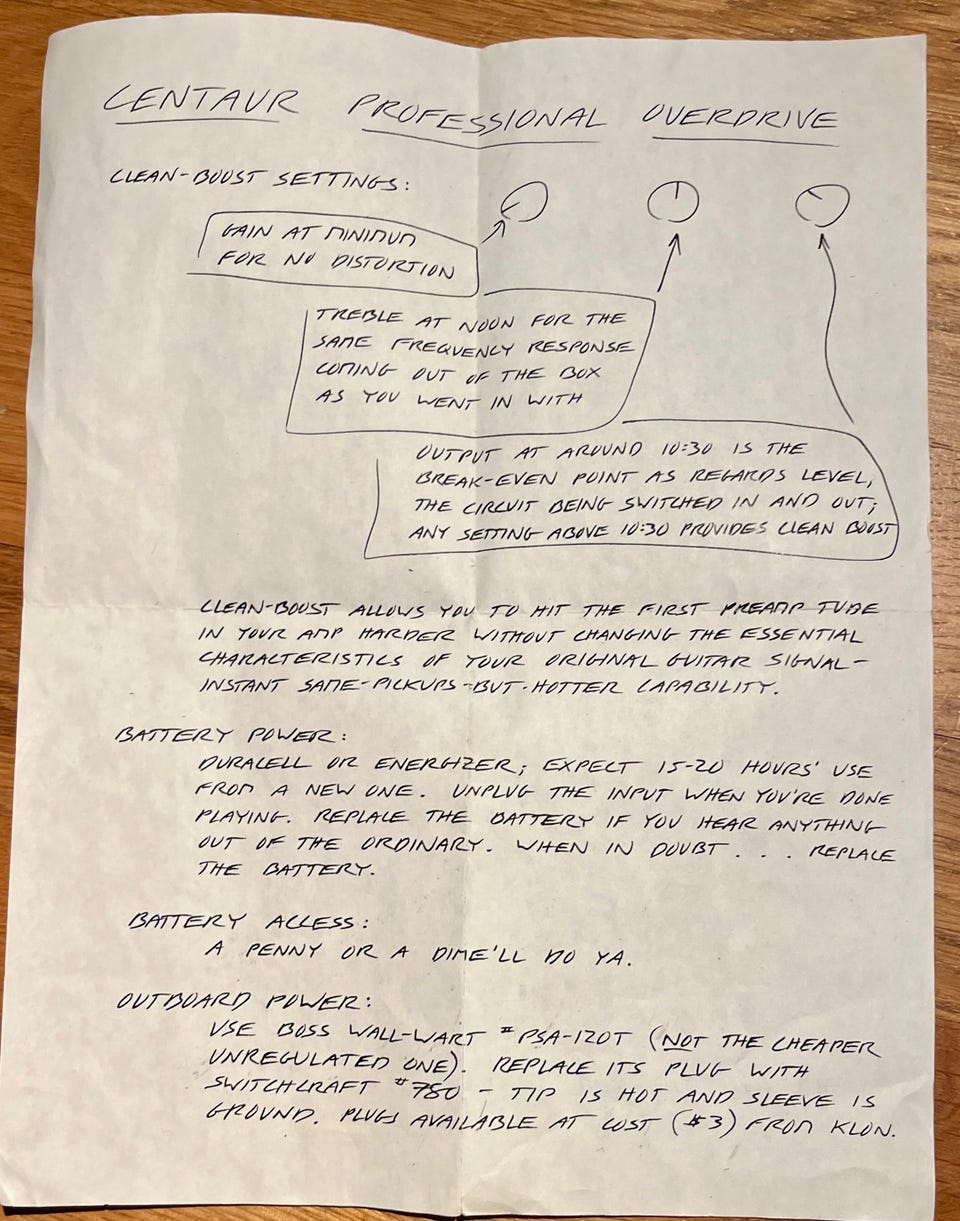 CENTAUR PROFESSIONAL OVERDRIVE
CLEAN-BOOST SETTINGS:
GAIN AT MINIMUM
FOR NO DISTORTION
TREBLE AT NOON FOR THE
SAME FREQUENCY RESPONSE
COMING OUT OF THE BOX
AS YOU WENT IN WITH
OUTPUT AT AROUND 10:30 IS THE
BREAK-EVEN POINT AS REGARDS LEVEL,
THE CIRCUIT BEING SWITCHED IN AND OUT;
ANY SETTING ABOVE 10:30 PROVIDES CLEAN BOOST
CLEAN-BOOST ALLOWS YOU TO HIT THE FIRST PREAMP TUBE
IN YOUR AMP HARDER WITHOUT CHANGING THE ESSENTIAL
CHARACTERISTICS OF YOUR ORIGINAL GUITAR SIGNAL-
INSTANT SAME-PICKUPS-BUT-HOTTER CAPABILITY.
BATTERY POWER:
DURACELL OR ENERGIZER; EXPECT 15-20 HOURS' USE
FROM A NEW ONE. UNPLUG THE INPUT WHEN YOU'RE DONE
PLAYING. REPLACE THE BATTERY IF YOU HEAR ANYTHING
OUT OF THE ORDINARY. WHEN IN DOUBT . . . REPLACE
THE BATTERY.
BATTERY ACCESS:
A PENNY OR A DIME'LL DO YA.
OUTBOARD POWER:
USE BOSS WALL-WART #PSA-120T (NOT THE CHEAPER
UNREGULATED ONE). REPLACE ITS PLUG WITH
SWITCHCRAFT #780 - TIP IS HOT AND SLEEVE IS
GROUND. PLUGS AVAILABLE AT COST ($3) FROM KLON.